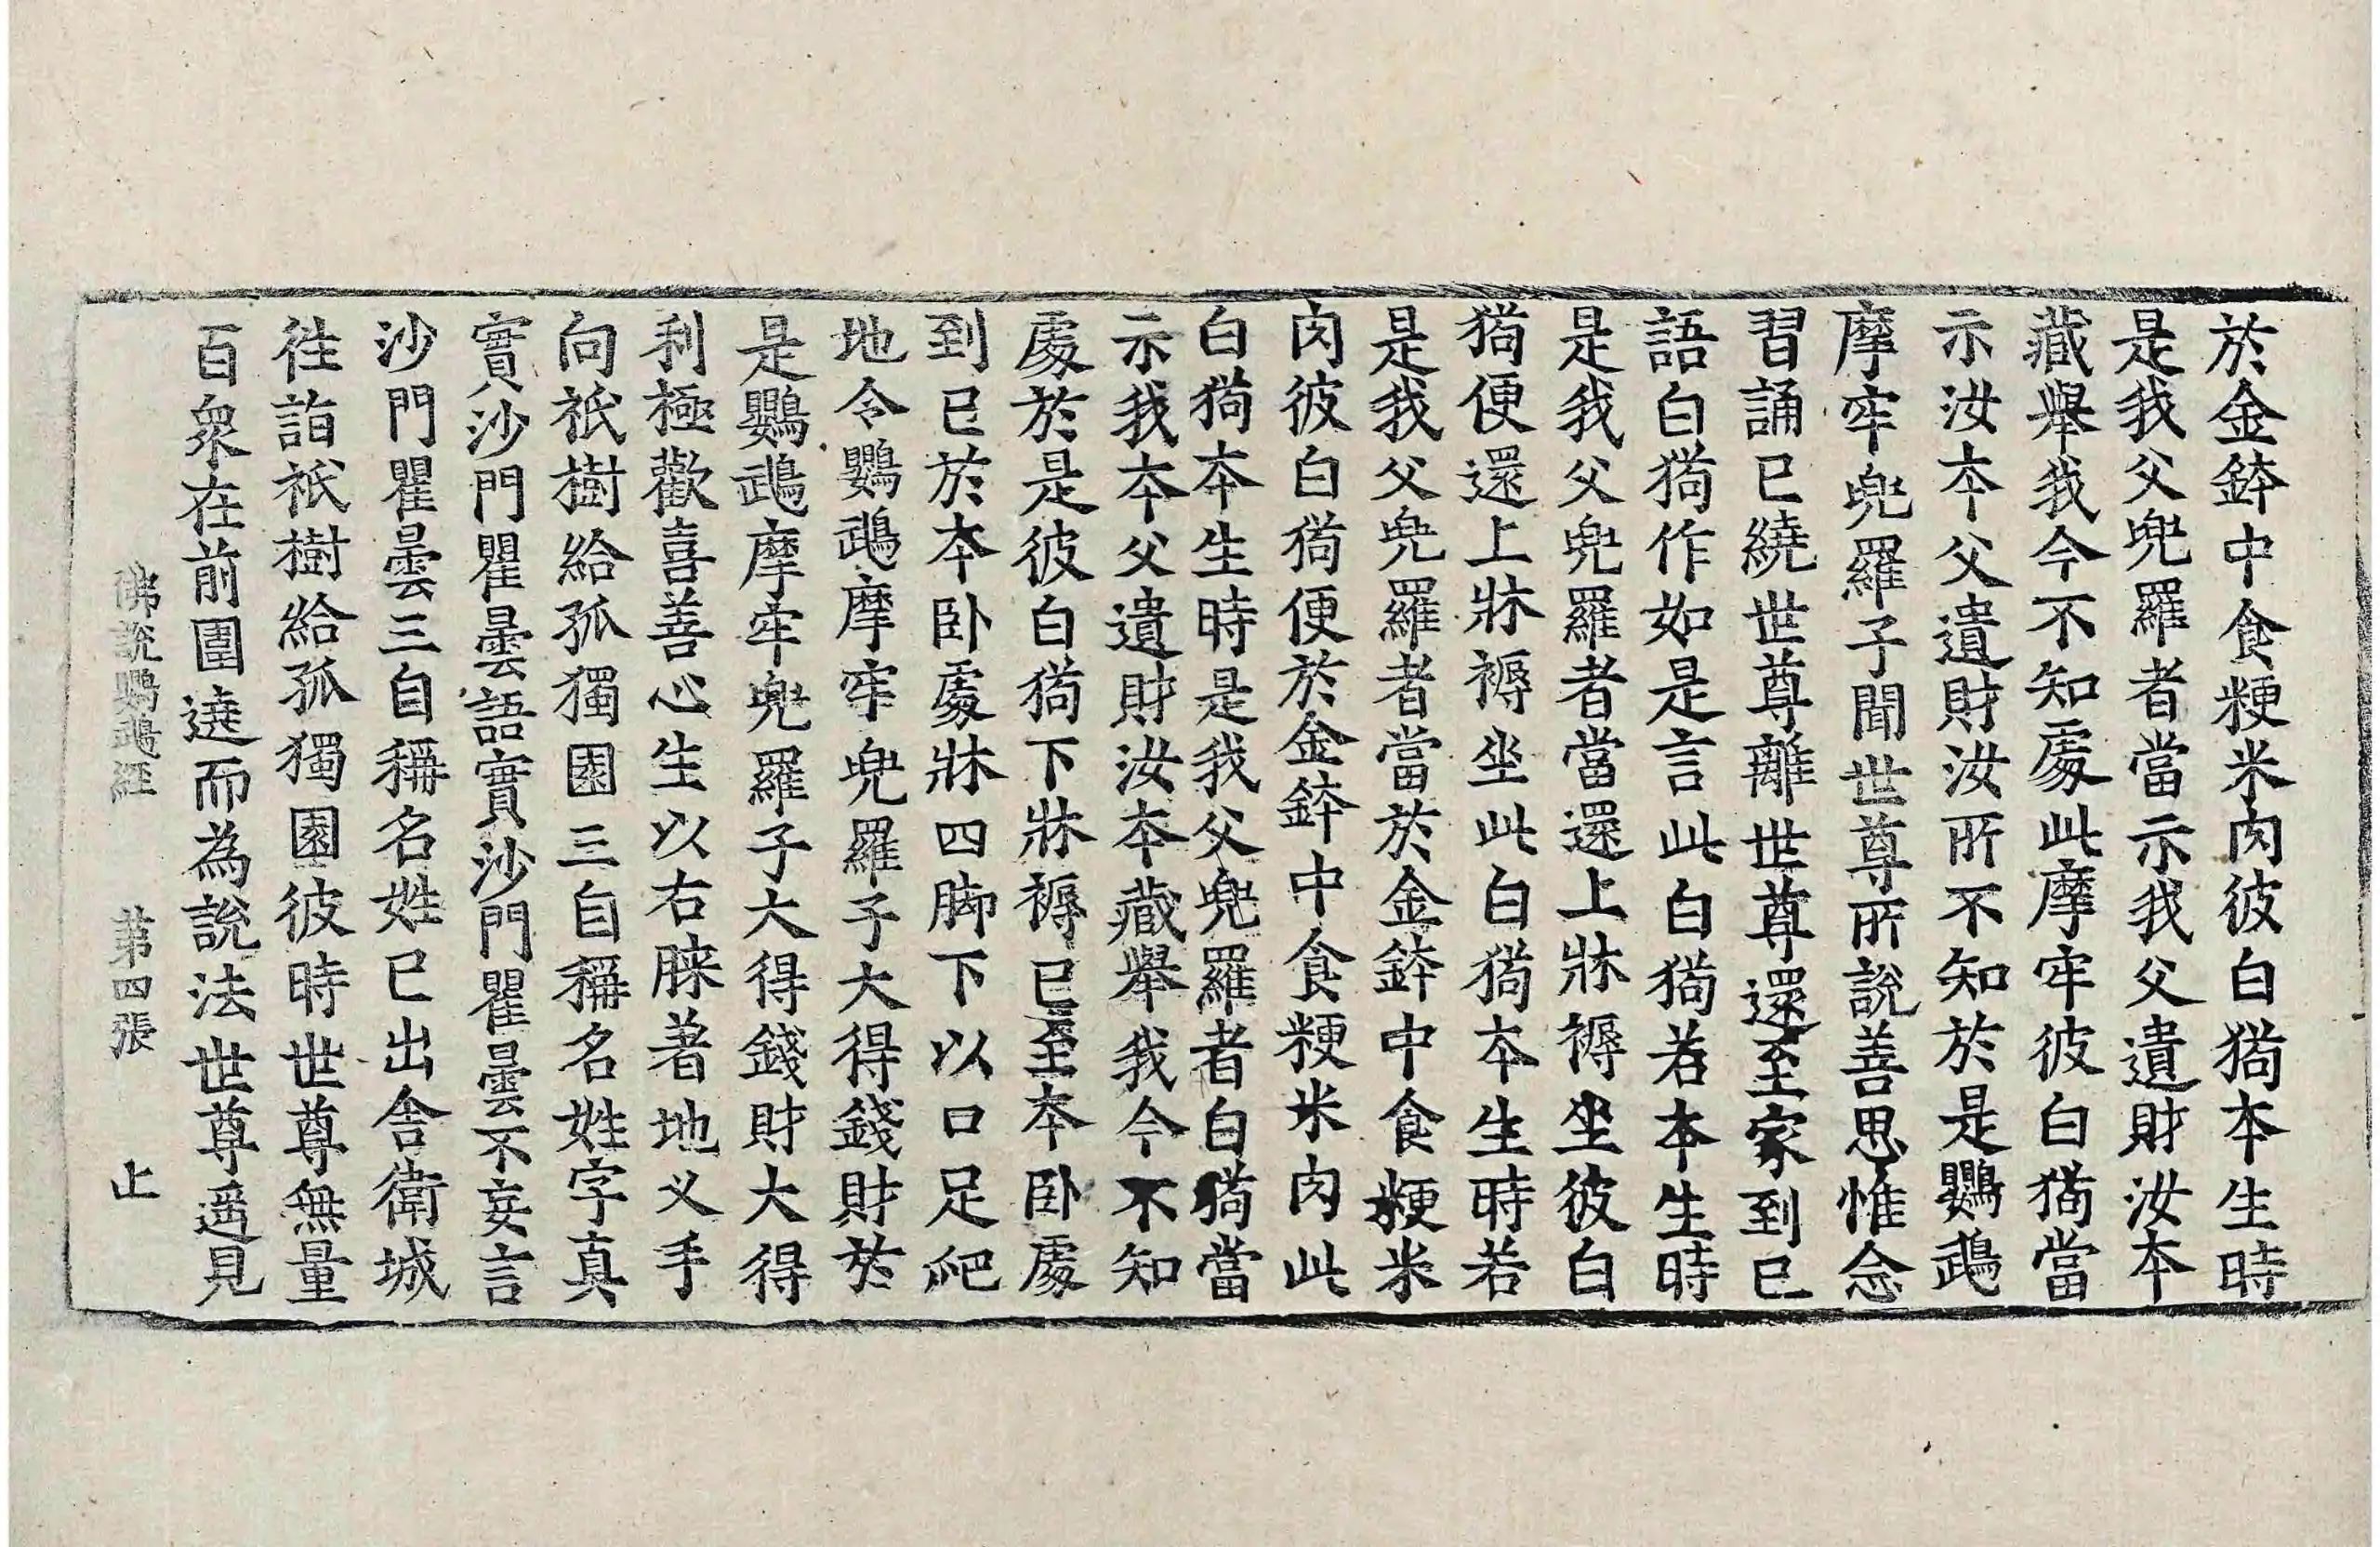 於金鉢中食粳米肉彼白狗本生時
是我父兜羅者當示我父遺財汝本
藏舉我今不知處此摩牢彼白狗當
示汝本父遺財汝所不知於是鸚鵡
摩牢兜羅子聞世尊所說善思惟念
習誦已繞世尊離世尊還至家到已
語白狗作如是言此白狗若本生時
是我父兜羅者當還上牀褥坐彼白
狗便還上牀褥坐此白狗本生時若
是我父兜羅者當於金鉢中食粳米
肉彼白狗便於金鉢中食粳米肉此
白狗本生時是我父兜羅者白狗當
示我本父遺財汝本藏舉我今不知
處於是彼白狗下牀褥已至本卧處
到已於本卧處牀四脚下以口足爬
地令鸚鵡摩牢兜羅子大得錢財於
是鸚鵡摩牢兜羅子大得錢財大得
利極歡喜善心生以右膝著地叉手
向祇樹給孤獨園三自稱名姓字真
實沙門瞿曇語實沙門瞿曇不妄言
沙門瞿曇三自稱名姓已出舍衛城
往詣祇樹給孤獨園彼時世尊無量
百衆在前圍遶而為說法世尊遥見
佛說鸚鵡經 第四張 止